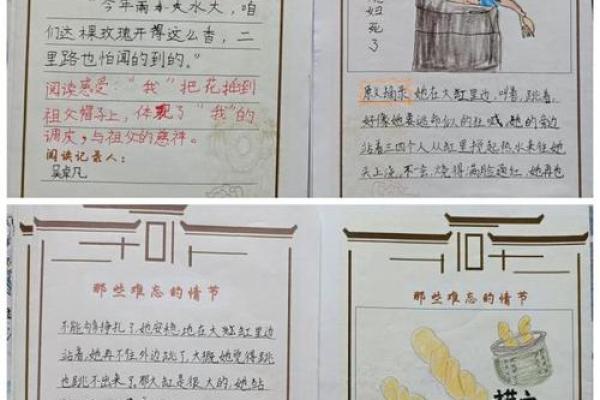 "今年雨水大，咱
们这棵玫瑰开得这么香，二
里路也怕闻的到的。"
阅读感受："我"把花插到
祖父帽子上，体现了"我"的
调皮，与祖父的慈祥。
阅读记录人：
吴卓凡
妇
死
了
原文摘录 她在大缸里边，叫着，跳着，
好像她要逃命似的狂喊，她的旁边
站着三四个人从缸里搅起热水来往她
头上浇，不一会，烧得满脸通红，她再也
那些难忘的情节
不能够挣扎了，她安稳地在大缸里边
站着，她再不往外边跳了，大概她觉得跳
也跳不出来了，那大缸是很大的，她站
那些难忘的情节